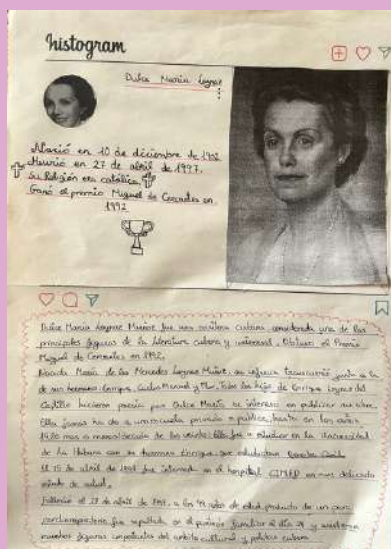 histogram
Dulce María Loynaz
Nació en 10 de diciembre de 1902
Murió en 27 de abril de 1997.
Su Religión era católica
Ganó el premio Miguel de Cervantes en
1992
Dulce María Loynaz Muñoz fue una escritora cubana considerada una de las
principales figuras de la literatura cubana y universal. Obtuvo el Premio
Miguel de Cervantes en 1992.
María de las Mercedes Loynaz Muñoz, su infancia transcurrió junto a la
de sus hermanos Enrique, Carlos Manuel y Flor. Todos los hijos de Enrique Loynaz del
Castillo hicieron poesía pero Dulce María se interesó en publicar su obra.
Ella jamás ha ido a una escuela privada o pública, hasta en los años
de los veinte. Ella fue a estudiar en la Universidad
de La Habana con su hermano Enrique, que estudiaban
El 15 de abril de fue internada en el hospital CIMEQ en muy delicado
estado de salud.
Falleció el 27 de abril de 1997, a los 94 años de edad producto de un paro
cardiorespiratorio fue sepultada en el panteón familiar el día 28 y asistieron
muchas figuras importantes del ámbito cultural y político cubano